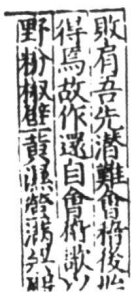 敗肩吾先潛難會稽後始
得焉故作還自會稽歌以
野粉椒壁黃濕螢滿梁殿